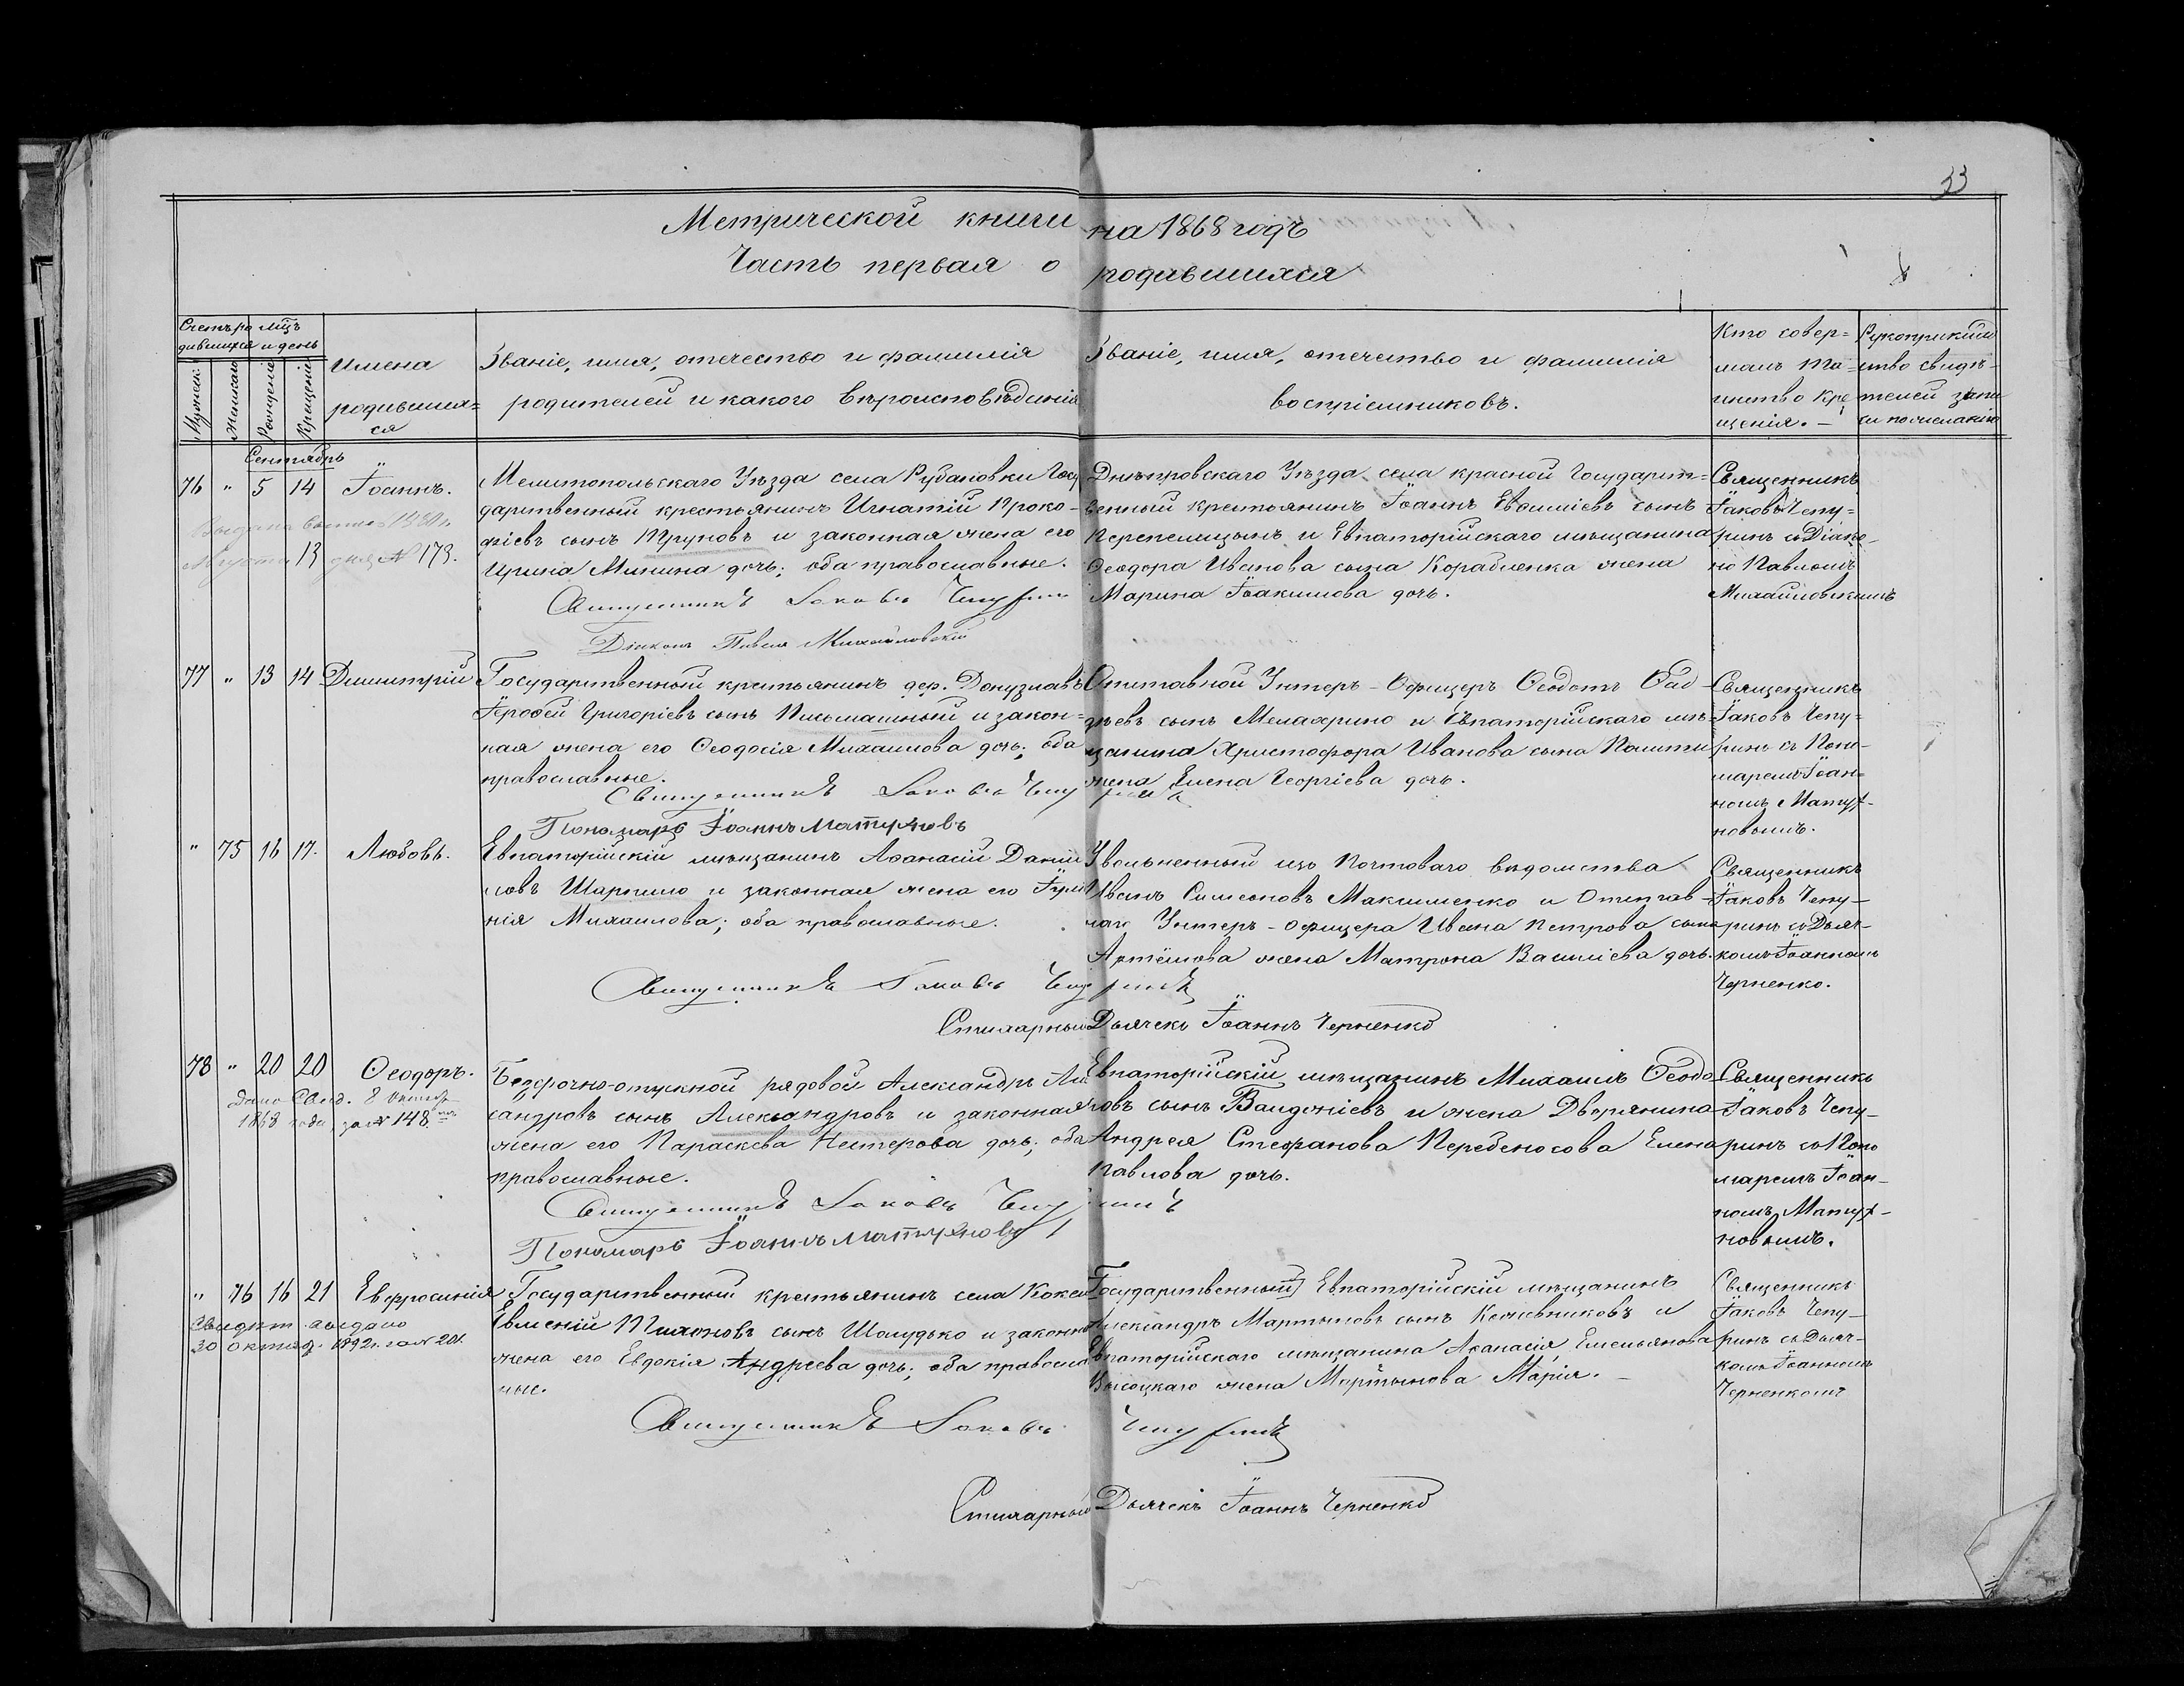 33
Метрической книги на 1868 годъ
Часть первая о родившихся
Счетъ ро
дившихся
мѣсъ
и день
Мужеск.
Женскаго
Рожденіе
Крещеніе
Имена
родивших=
ся
Званіе, имя, отечество и фамилія
родителей и какого вѣроисповѣданія
Званіе, имя, отечество и фамилія
воспріемниковъ.
Кто совер=
шалъ та=
инство кре
щенія. —
Рукоприклад
ство свидѣ-
телей запи
си по желанію
Сентябрь
76 " 5 14 Іоаннъ.
августа 13 дня № 173.
Мелитопольскаго Уѣзда села Рубановки Госу
дарственный крестьянинъ Игнатій Проко-
фіевъ сынъ Труновъ и законная жена его
Ирина Минина дочь; оба православные.
Священникъ Іаковъ Чепуринъ
Діаконъ Павелъ Михайловскій
Днѣпровскаго Уѣзда села красной Государст=
венный крестьянинъ Іоаннъ Евсиміевъ сынъ
Перепелицынъ и Евпаторійскаго мѣщанина
Ѳеодора Иванова сына Корабленка жена
Марина Іоакимова дочь.
Священникъ
Іаковъ Чепу=
ринъ съ Діако-
но Павломъ
Михайловскимъ
77 " 13 14 Димитрій
Государственный крестьянинъ дер. Донузлавъ
Іероѳей Григоріевъ сынъ Письмашный и закон=
ная жена его Ѳеодосія Михаилова дочь; оба
православные.
Священникъ Іаковъ Чепуринъ
Пономарь Іоаннъ Матухновъ
Отставной Унтеръ-Офицеръ Ѳеодотъ Ѳад-
дѣевъ сынъ Мелахрино и Евпаторійскаго мѣ-
щанина Христофора Иванова сына Пашти
жена Елена Георгіева дочь.
Священникъ
Іаковъ Чепу=
ринъ съ Поно-
маремъ Іоан-
номъ Матух-
новымъ.
" 75 16 17. Любовь.
Евпаторійскій мѣщанинъ Аѳанасій Даніи
ловъ Шарпило и законная жена его Іулі
нія Михаилова; оба православные.
Священникъ Іаковъ Чепуринъ
Стихарный Дьячекъ Іоаннъ Черненко
Увольненный изъ Почтоваго вѣдомства
Иванъ Симеоновъ Максименко и Отстав-
наго Унтеръ-офицера Ивана Петрова сына
Артёмова жена Матрона Василіева дочь.
Священникъ
Іаковъ Чепу-
ринъ съ Дьяч-
комъ Іоанномъ
Черненко.
78 " 20 20 Ѳеодоръ.
Дано Свид. 8 Октяб.
1868 года за № 148
Безсрочно-отпускной рядовой Александръ Але
сандровъ сынъ Александровъ и законная
жена его Параскева Нестерова дочь; оба
православные.
Священникъ Іаковъ Чепуринъ
Пономарь Іоаннъ Матухновъ
Евпаторійскій мѣщанинъ Михаилъ Ѳеодо-
ровъ сынъ Ванджіевъ и жена Дворянина
Андрея Стефанова Передносова Елена
Павлова дочь.
Священникъ
Іаковъ Чепу-
ринъ съ Поно
маремъ Іоан-
номъ Матух-
новымъ.
" 76 16 21 Евфросинія
Свидѣт. выдано
30 октяб. 1892 г. за № 201
Государственный крестьянинъ села Кокеи
Евмений Тихоновъ сынъ Шолудько и законн
жена его Евдокія Андреева дочь; оба правосла
ные.
Священникъ Іаковъ Чепуринъ
Стихарный Дьячекъ Іоаннъ Черненко
Государственный Евпаторійскій мѣщанинъ
Александръ Мартыновъ сынъ Кожевниковъ и
Евпаторійскаго мѣщанина Аѳанасія Емельянова
Высоцкаго жена Мартынова Марія. —
Священникъ
Іаковъ Чепу-
ринъ съ Дьяч-
комъ Іоанномъ
Черненкомъ